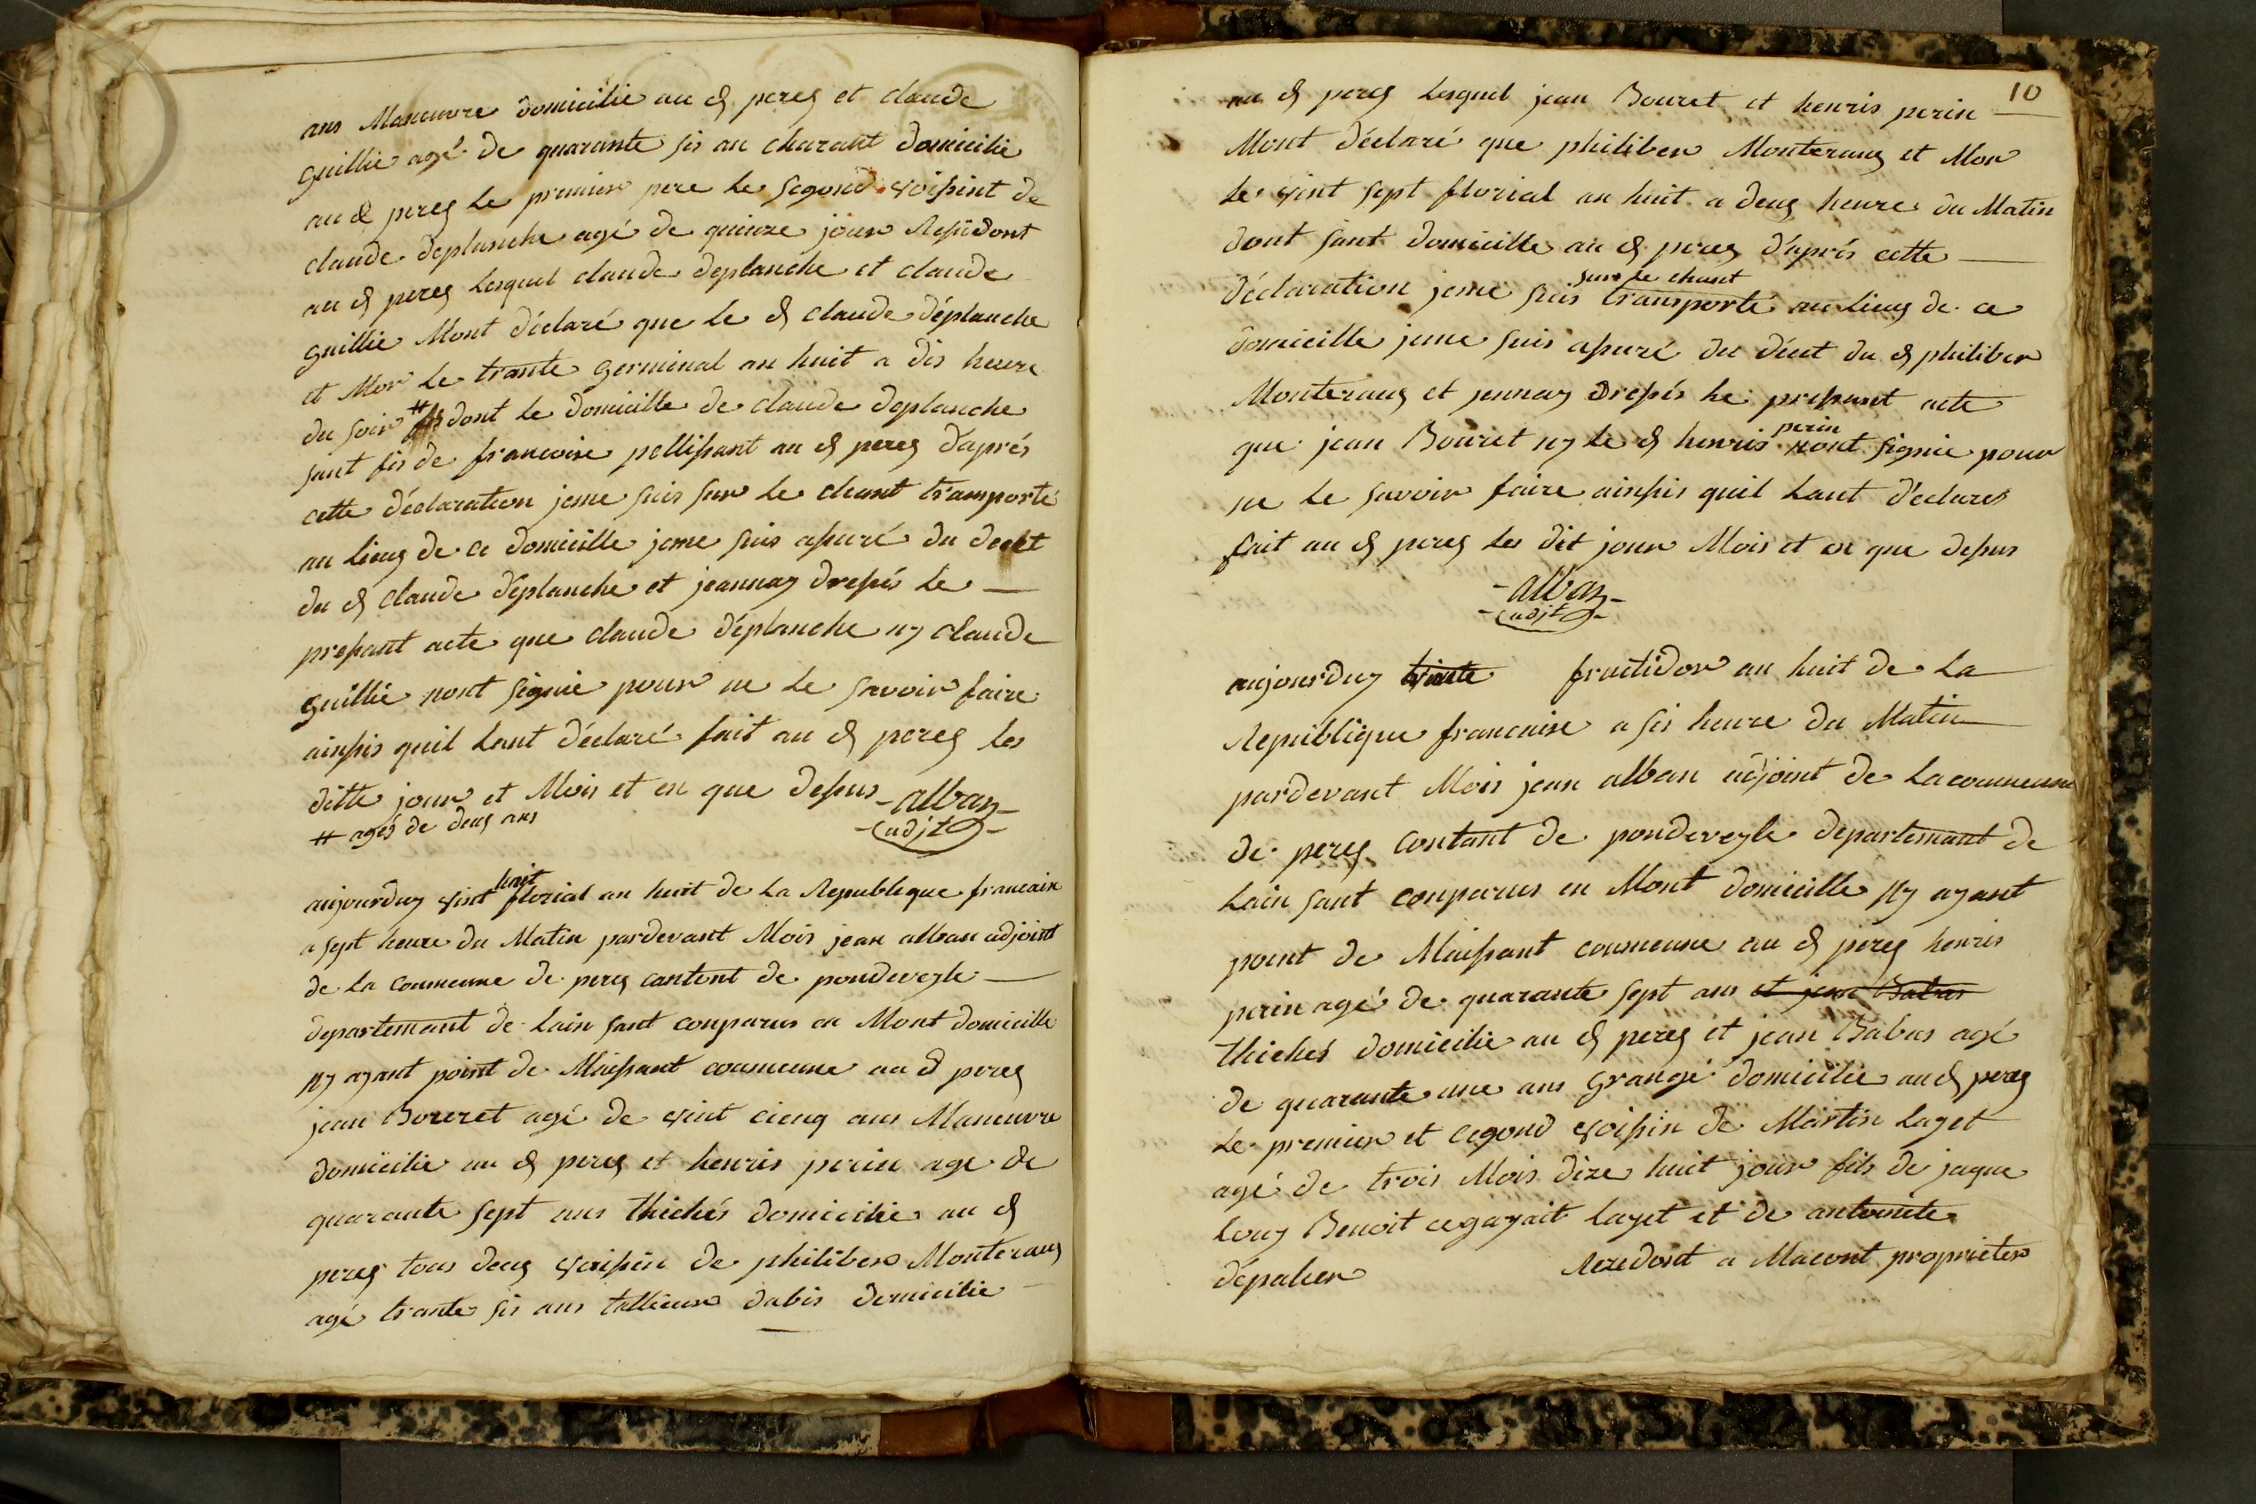 ans Maneuvre domicilie au d. perex et claude
guillie agé de quarante sis an charant domicilie
au d. perex le premier pere le segond voisint de
claude deplanche agé de quinze jour Residont
au d. perex lesquel claude deplanche et claude
guillie Mont déclaré que le d. claude déplanche
et Mor le trante germinal an huit a dis heure
du soir # dont le domicille de claude deplanche
sant fis de francoise pellissant au d. perex d'aprés
cette déclaration jeme suis sur le chant transporté
au lieux de ce domicille jeme suis assuré du decet
du d. claude déplanche et jeannay dressés le
pressant acte que claude déplanche ny claude
guillié nont signie pour ne le savoir faire
ainssis quil lant déclaré fait au d. perex les
ditte jour et Mois et en que dessus - alban -
# agés de deux ans - adjt -
aujourduy vint huit florial an huit de la Republeque francaise
a sept heure du Matin pardevant Mois jean alban adjoint
de la coumeune de perex cantont de pondeveyle
departemant de lain sant conparus en Mont domicille
ny ayant point de Maissant coumeune au d. perex
jean Boureret agé de vint cienq ans Maneuvre
domicilie au d. perex et henris perin age de
quarante sept ans thichés domicilie au d.
perex tous deux voissin de philiber Monteraux
agé trante sis ans tallieur dabis domicilie
10
au d. perex lesquel jean Bouret et henris perin
Mont déclaré que philiber Monteraux et Mor
le vint sept florial an huit a deux heure du Matin
dont sant domicille au d. perex d'aprés cette
déclaration jeme suis sur le chant transporté au lieux de ce
domicille jeme suis assuré du décet du d. philiber
Monteraux et jennay dressés le pressant acte
que jean Bouret ny le d. henris perin nont signie pour
ne le savoir faire ainssis quil lant déclares
fait au d. perex les dit jour Mois et en que dessus
- alban -
- adjt -
aujourduy trante fructidor an huit de la
Republique francaise a sis heure du Matin
pardevant Mois jean alban adjoint de la coumeune
de perex contant de pondeveyle departemant de
lain sant conparus en Mont domicille ny ayant
point de Maissant coumeune au d. perex henris
perin agé de quarante sept ans et jean Babus
thichés domicilie au d. perex et jean Babus agé
de quarante une ans grangé domicilie au d. perex
le premier et cegond voissin de Martin laget
agé de trois Mois dize huit jour fils de jaque
louy Benoit cegayait layet et de antoinete
dépalier Rezedont a Macont proprieter